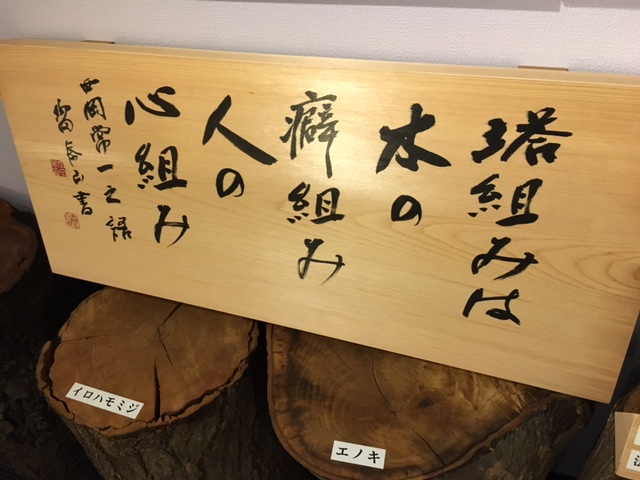 塔組みは
木の
癖組み
人の
心組み
西岡常一之語
イロハモミジ
エノキ